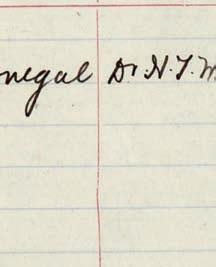 negal Dr. H. T. W